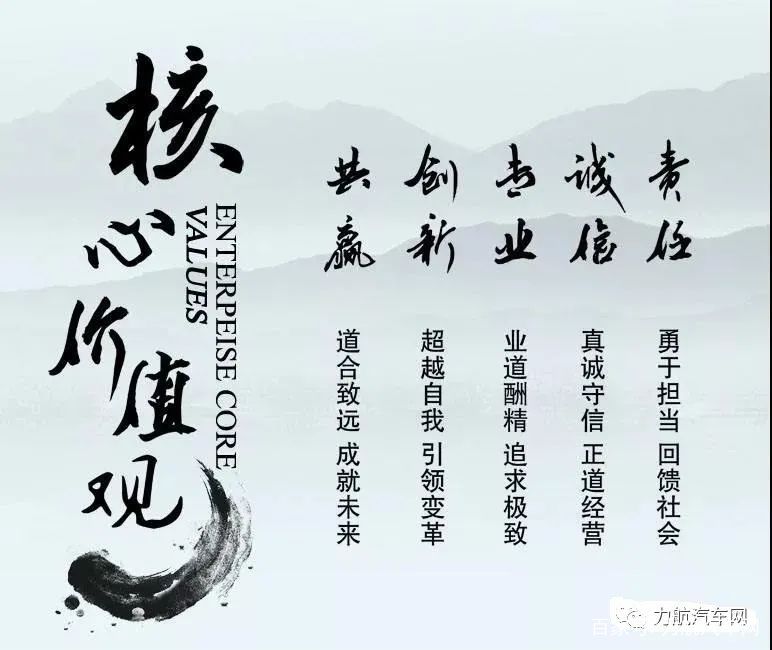 核心价值观
ENTERPEISE CORE
VALUES
责任
勇于担当 回馈社会
诚信
真诚守信 正道经营
专业
业道酬精 追求极致
创新
超越自我 引领变革
共赢
道合致远 成就未来
力航汽车网